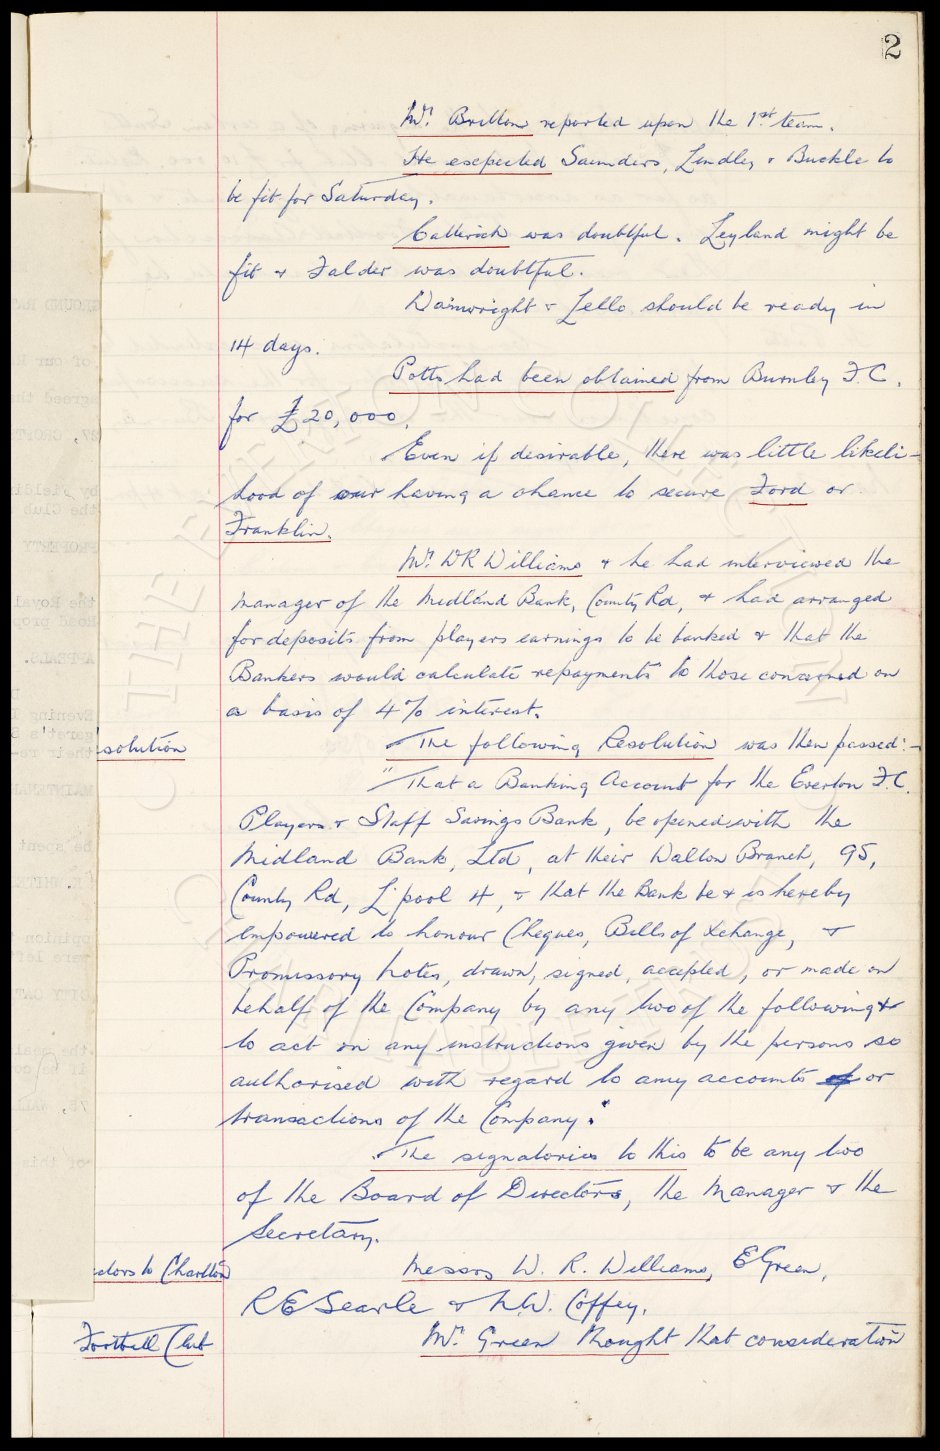 2
Mr. Britton reported upon the 1st team.
He expected Saunders, Lindley & Buckle to
be fit for Saturday.
Catterick was doubtful. Leyland might be
fit & Falder was doubtful.
Wainwright & Lello should be ready in
14 days.
Potts had been obtained from Burnley F.C.
for £20,000.
Even if desirable, there was little likeli-
hood of our having a chance to secure Ford or
Franklin.
Mr. WR Williams & he had interviewed the
Manager of the Midland Bank, County Rd, & had arranged
for deposits from players earnings to be banked & that the
Bankers would calculate repayments to those concerned on
a basis of 4% interest.
solution
The following Resolution was then passed:-
"That a Banking Account for the Everton F.C.
Players & Staff Savings Bank, be opened with the
Midland Bank, Ltd, at their Walton Branch, 95,
County Rd, L'pool 4, & that the Bank be & is hereby
empowered to honour Cheques, Bills of Xchange, &
Promissory Notes, drawn, signed, accepted, or made on
behalf of the Company by any two of the following &
to act on any instructions given by the persons so
authorised with regard to any accounts of or
transactions of the Company."
The signatories to this to be any two
of the Board of Directors, the Manager & the
Secretary.
ectors to Charlton
Messrs W. R. Williams, E Green,
R E Searle & N.W. Coffey.
Football Club
Mr. Green thought that consideration
THE EVERTON COLLECTION
GROUND RA
of our R
agreed tha
27, CROFT
by yieldin
the Club
PROPERTY
the Royal
Road prop
APPEALS.
Evening
garet's
their re-
MAINTENAN
be spent
K. WHITE
opinion
were left
CITY CAT
the seal
if he co
75, WALL
of this